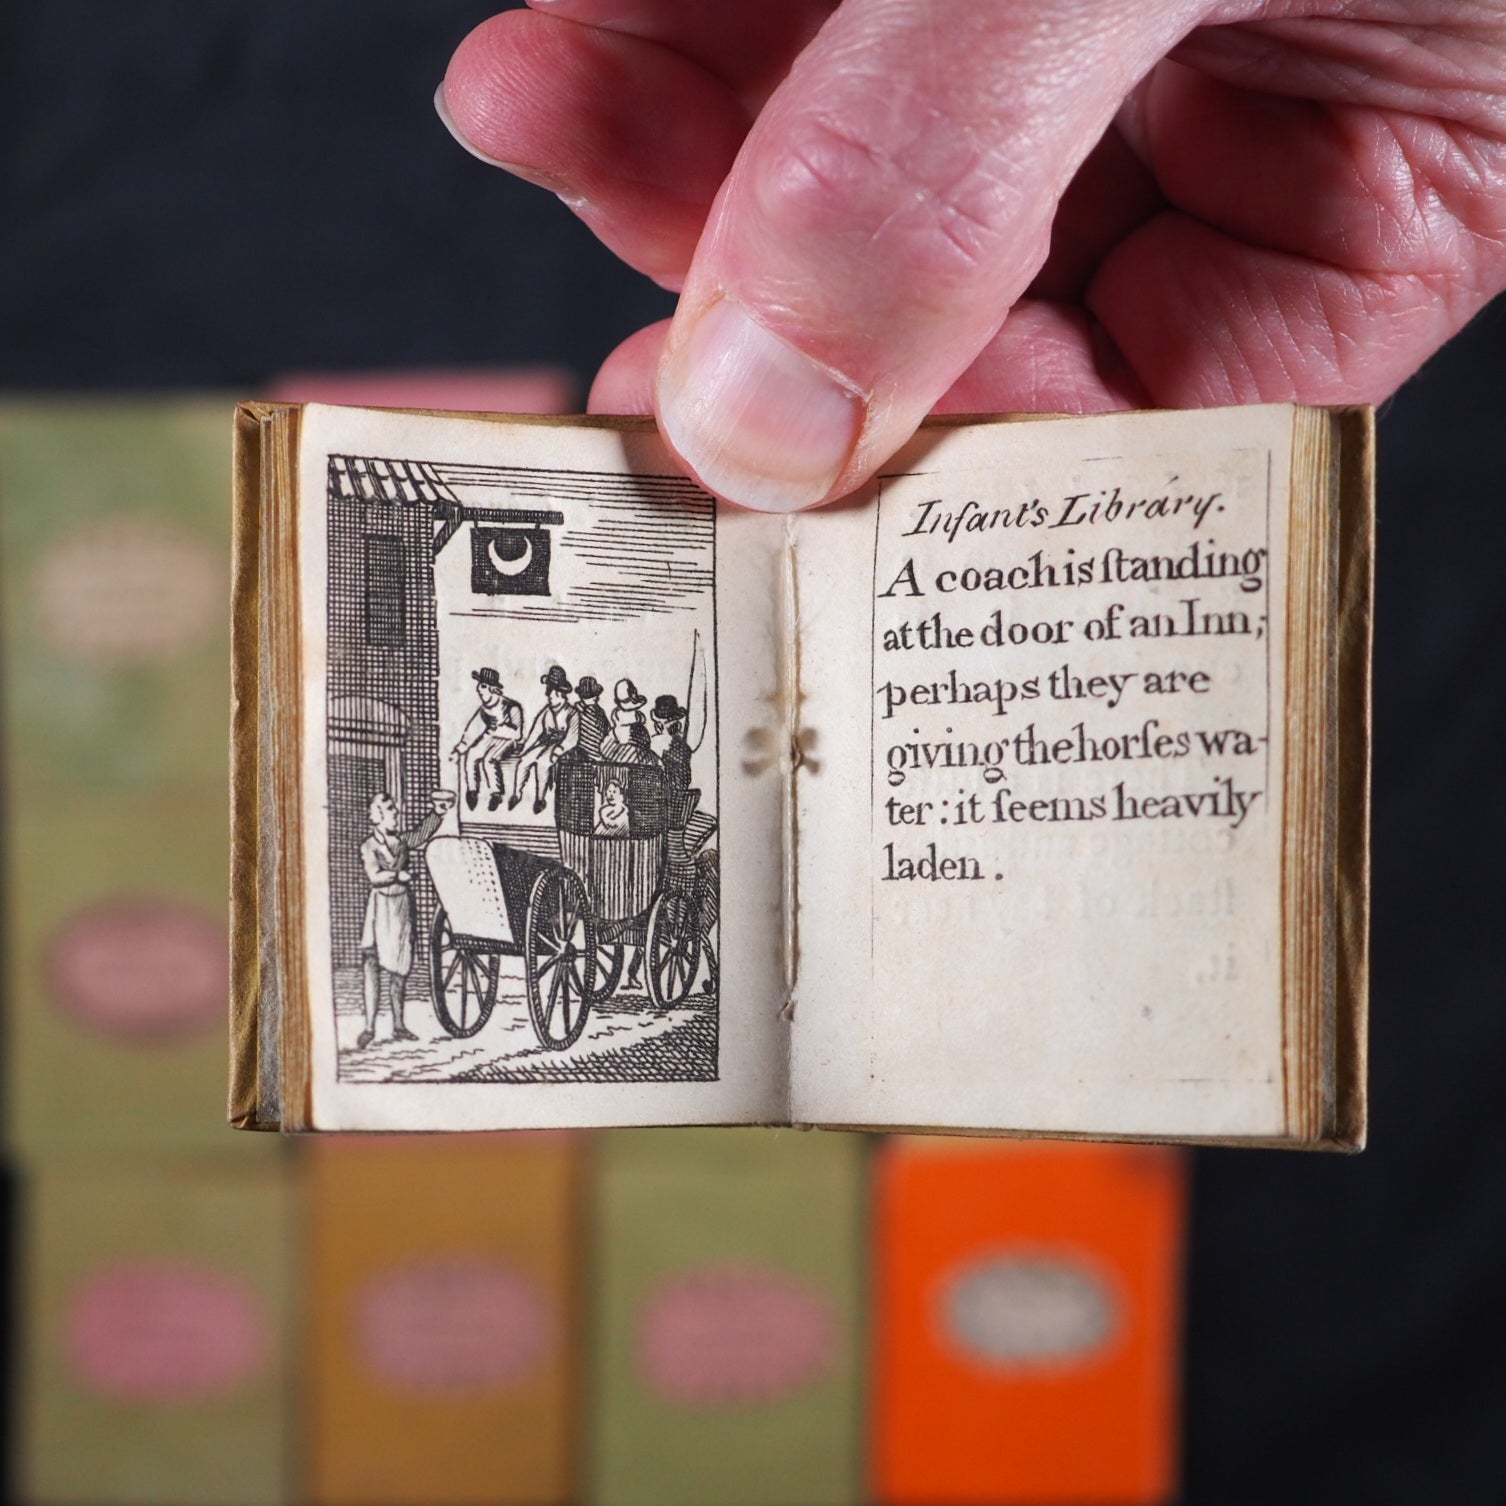 Infant's Library.
A coach is ſtanding
at the door of an Inn;
perhaps they are
giving the horſes wa-
ter: it ſeems heavily
laden.